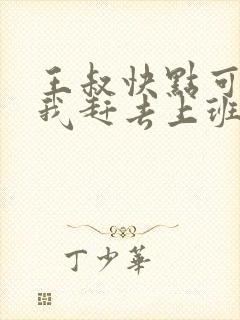 王叔快點可
我赶去上班
丁少華